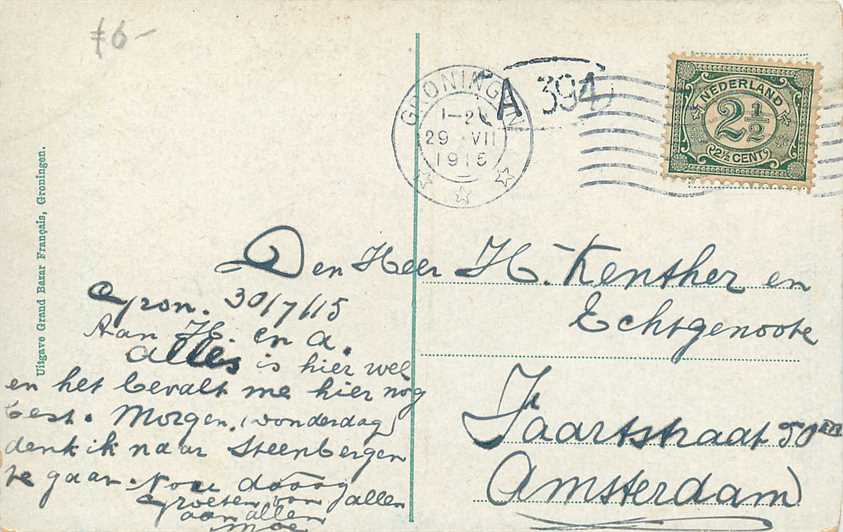 f6-
Uitgave Grand Bazar Français, Groningen.
GRONINGEN
1-2
29 VII
1915
A 394
NEDERLAND
2½
2½ CENT
Den Heer H. Kenther en
Echtgenoote
Jaartstraat 50
Amsterdam
Gron. 30/7/15
Aan H. en A.
Alles is hier wel
en het bevalt me hier nog
best. Morgen, (donderdag)
denk ik naar Steenbergen
te gaan. Nou dáoog
Groeten van allen
aan allen
Moe